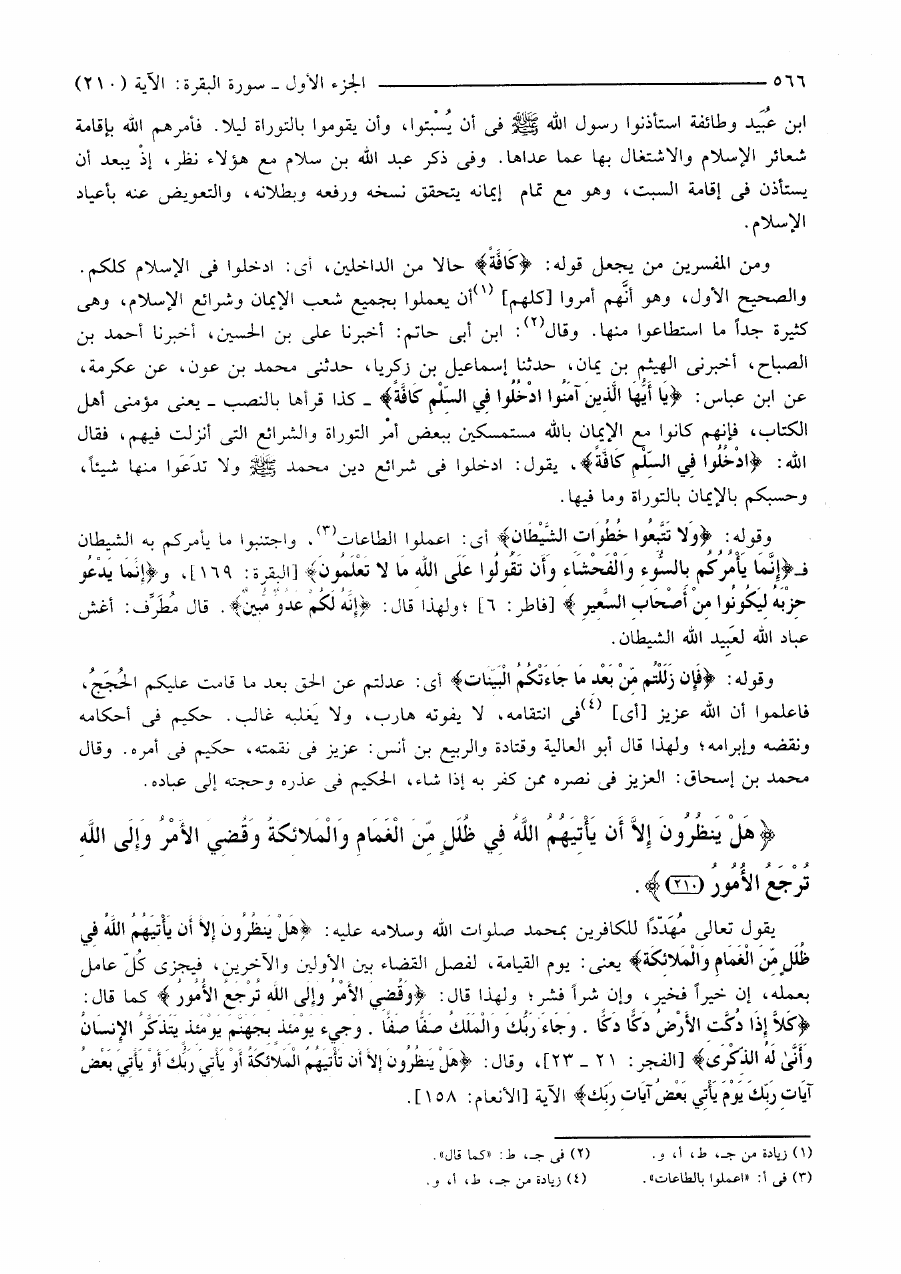 ٥٦٦ ــــــــــــــــــــ الجزء الأول ـ سورة البقرة: الآية (٢١٠)
ابن عُبَيد وطائفة استأذنوا رسول الله ﷺ فى أن يُسْبتوا، وأن يقوموا بالتوراة ليلا. فأمرهم الله بإقامة
شعائر الإسلام والاشتغال بها عما عداها. وفى ذكر عبد الله بن سلام مع هؤلاء نظر، إذْ يبعد أن
يستأذن فى إقامة السبت، وهو مع تمام إيمانه يتحقق نسخه ورفعه وبطلانه، والتعويض عنه بأعياد
الإسلام.
ومن المفسرين من يجعل قوله: ﴿كَافَّةً﴾ حالا من الداخلين، أى: ادخلوا فى الإسلام كلكم.
والصحيح الأول، وهو أنَّهم أمروا [كلهم] (١)أن يعملوا بجميع شعب الإيمان وشرائع الإسلام، وهى
كثيرة جداً ما استطاعوا منها. وقال(٢): ابن أبى حاتم: أخبرنا على بن الحسين، أخبرنا أحمد بن
الصباح، أخبرنى الهيثم بن يمان، حدثنا إسماعيل بن زكريا، حدثنى محمد بن عون، عن عكرمة،
عن ابن عباس: ﴿يَا أَيُّهَا الَّذِينَ آمَنُوا ادْخُلُوا فِي السِّلْمِ كَافَّةً﴾ ـ كذا قرأها بالنصب ـ يعنى مؤمنى أهل
الكتاب، فإنهم كانوا مع الإيمان بالله مستمسكين ببعض أمْر التوراة والشرائع التى أنزلت فيهم، فقال
الله: ﴿ادْخُلُوا فِي السِّلْمِ كَافَّةً﴾، يقول: ادخلوا فى شرائع دين محمد ﷺ ولا تدَعَوا منها شيئاً،
وحسبكم بالإيمان بالتوراة وما فيها.
وقوله: ﴿وَلا تَتَّبِعُوا خُطُوَاتِ الشَّيْطَانِ﴾ أى: اعملوا الطاعات(٣)، واجتنبوا ما يأمركم به الشيطان
فـ﴿إِنَّمَا يَأْمُرُكُم بِالسُّوءِ وَالْفَحْشَاءِ وَأَن تَقُولُوا عَلَى اللَّهِ مَا لا تَعْلَمُونَ﴾ [البقرة: ١٦٩]، و﴿إِنَّمَا يَدْعُو
حِزْبَهُ لِيَكُونُوا مِنْ أَصْحَابِ السَّعِيرِ﴾ [فاطر: ٦] ؛ولهذا قال: ﴿إِنَّهُ لَكُمْ عَدُوٌّ مُّبِينٌ﴾. قال مُطَرِّف: أغش
عباد الله لعَبِيد الله الشيطان.
وقوله: ﴿فَإِن زَلَلْتُم مِّنْ بَعْدِ مَا جَاءَتْكُمُ الْبَيِّنَاتُ﴾ أى: عدلتم عن الحق بعد ما قامت عليكم الحُجَجُ،
فاعلموا أن الله عزيز [أى] (٤)فى انتقامه، لا يفوته هارب، ولا يَغلبه غالب. حكيم فى أحكامه
ونقضه وإبرامه؛ ولهذا قال أبو العالية وقتادة والربيع بن أنس: عزيز فى نقمته، حكيم فى أمره. وقال
محمد بن إسحاق: العزيز فى نصره ممن كفر به إذا شاء، الحكيم فى عذره وحجته إلى عباده.
﴿هَلْ يَنظُرُونَ إِلاَّ أَن يَأْتِيَهُمُ اللَّهُ فِي ظُلَلٍ مِّنَ الْغَمَامِ وَالْمَلائِكَةُ وَقُضِيَ الأَمْرُ وَإِلَى اللَّهِ
تُرْجَعُ الأُمُورُ (٢١٠)﴾.
يقول تعالى مُهَدِّدًا للكافرين بمحمد صلوات الله وسلامه عليه: ﴿هَلْ يَنظُرُونَ إِلاَّ أَن يَأْتِيَهُمُ اللَّهُ فِي
ظُلَلٍ مِّنَ الْغَمَامِ وَالْمَلائِكَةُ﴾ يعنى: يوم القيامة، لفصل القضاء بين الأولين والآخرين، فيجزى كُلّ عامل
بعمله، إن خيراً فخير، وإن شراً فشر؛ ولهذا قال: ﴿وَقُضِيَ الأَمْرُ وَإِلَى اللَّهِ تُرْجَعُ الأُمُورُ﴾ كما قال:
﴿كَلاَّ إِذَا دُكَّتِ الأَرْضُ دَكًّا دَكًّا . وَجَاءَ رَبُّكَ وَالْمَلَكُ صَفًّا صَفًّا . وَجِيءَ يَوْمَئِذٍ بِجَهَنَّمَ يَوْمَئِذٍ يَتَذَكَّرُ الإِنسَانُ
وَأَنَّىٰ لَهُ الذِّكْرَىٰ﴾ [الفجر: ٢١ ـ ٢٣]، وقال: ﴿هَلْ يَنظُرُونَ إِلاَّ أَن تَأْتِيَهُمُ الْمَلائِكَةُ أَوْ يَأْتِيَ رَبُّكَ أَوْ يَأْتِيَ بَعْضُ
آيَاتِ رَبِّكَ يَوْمَ يَأْتِي بَعْضُ آيَاتِ رَبِّكَ﴾ الآية [الأنعام: ١٥٨].
(١) زيادة من جـ، ط، أ، و. (٢) فى جـ، ط: «كما قال».
(٣) فى أ: «اعملوا بالطاعات». (٤) زيادة من جـ، ط، أ، و.